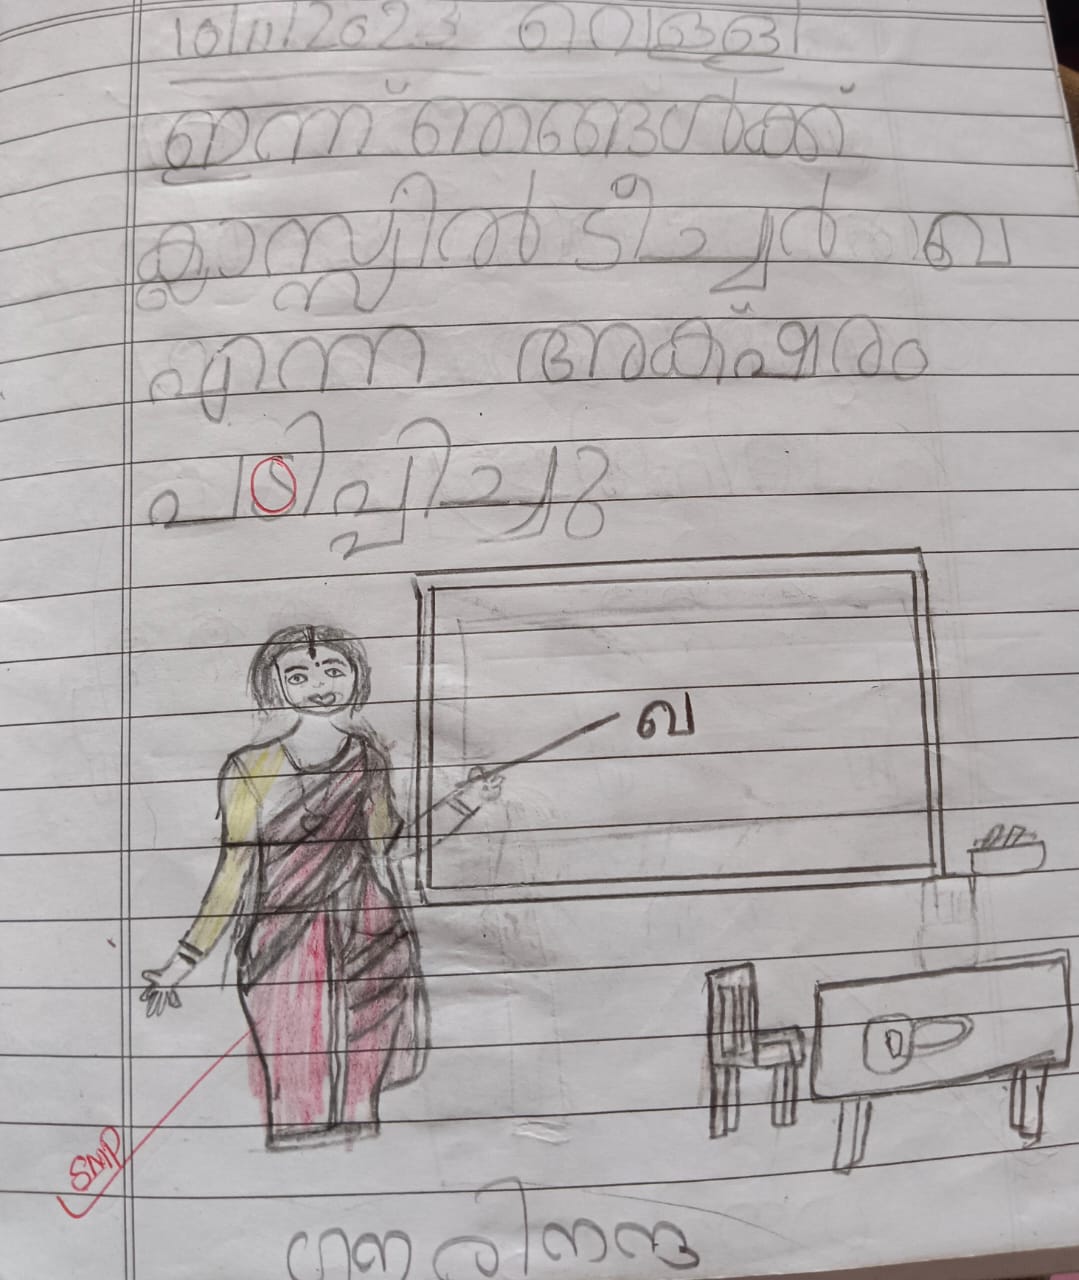 10/11/2023 വെള്ളി
ഇന്ന് ഞങ്ങൾക്ക്
ക്ലാസ്സിൽ ടീച്ചർ ഖ
എന്ന അക്ഷരം
പഠിപ്പിച്ചു
ഖ
SMP
ഗൗരിനന്ദ